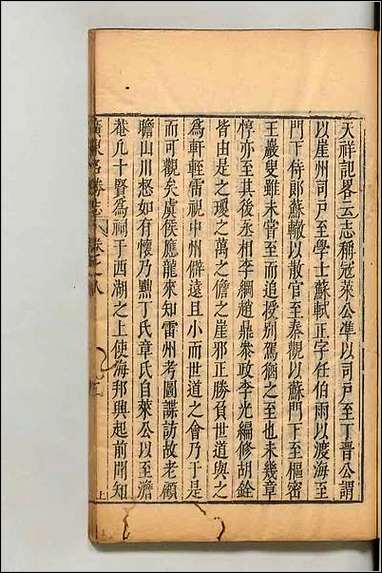 天祥記畧云志稱寇萊公準以司戶至丁晉公謂
以崖州司戶至學士蘇軾正字任伯雨以渡海至
門下侍郎蘇轍以散官至秦觀以蘇門下至樞密
王巖叟雖未嘗至而追授别駕猶之至也未幾章
惇亦至其後丞相李綱趙鼎叅政李光編修胡銓
皆由是之瓊之萬之儋之崖邪正勝負世道與之
爲軒輊雷視中州僻遠且小而世道之會乃于是
而可觀矣虞侯應龍來知雷州考圖諜訪故老顧
瞻山川愁如有懷乃黜丁氏章氏自萊公以至澹
菴凡十賢爲祠于西湖之上使海邦興起前聞知
勝志 卷之八
上